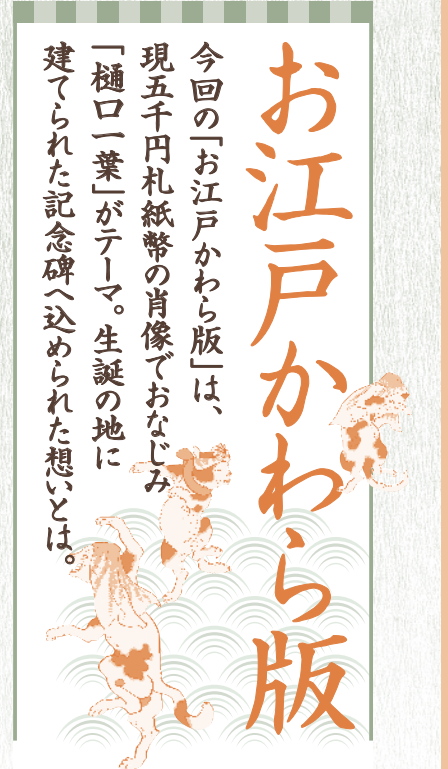 お江戸かわら版
今回の「お江戸かわら版」は、
現五千円札紙幣の肖像でおなじみ
「樋口一葉」がテーマ。生誕の地に
建てられた記念碑へ込められた想いとは。